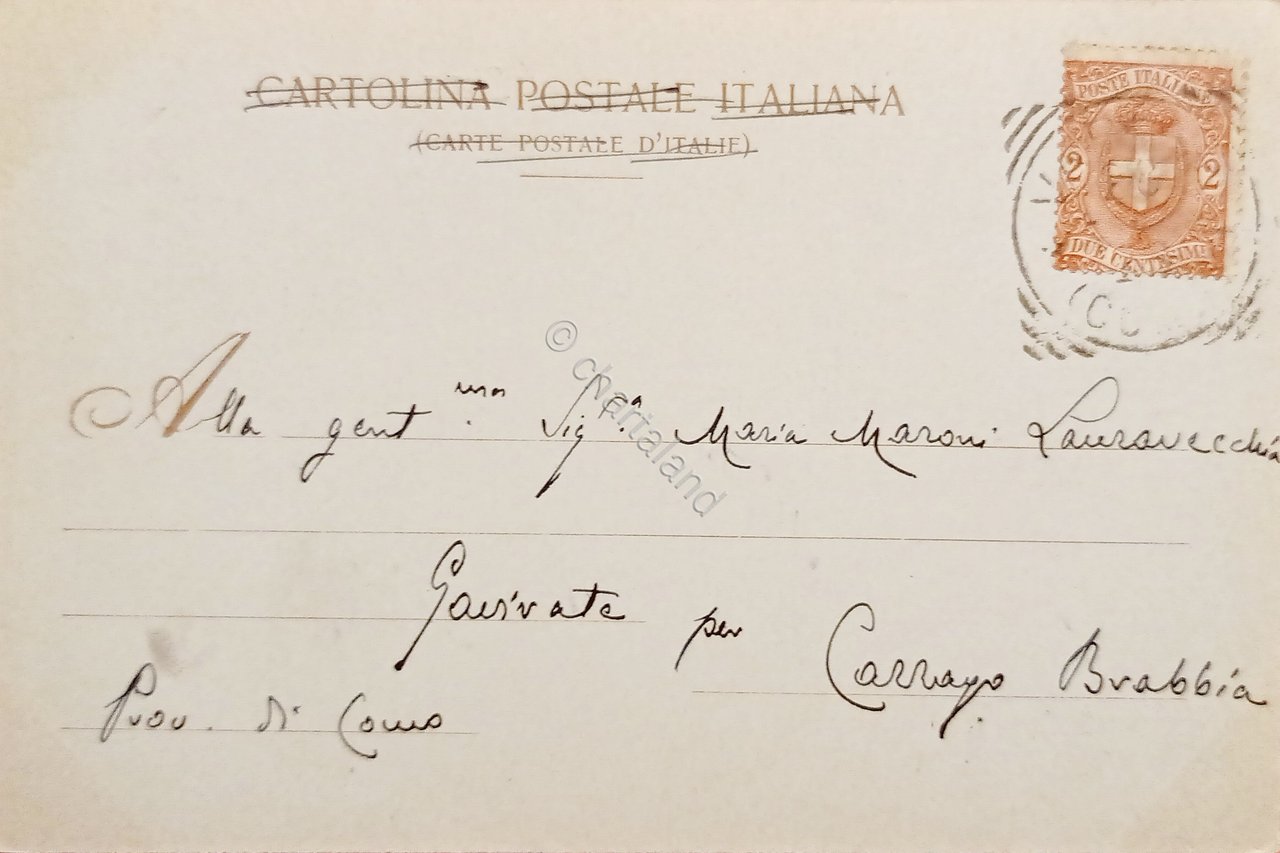 CARTOLINA POSTALE ITALIANA
(CARTE POSTALE D'ITALIE)
POSTE ITALIANE
2 2
DUE CENTESIMI
© chartaland
Alla gent.ma Sig.ra Maria Maroni Lauravecchia
Gavirate per Cazzago Brabbia
Prov. di Como